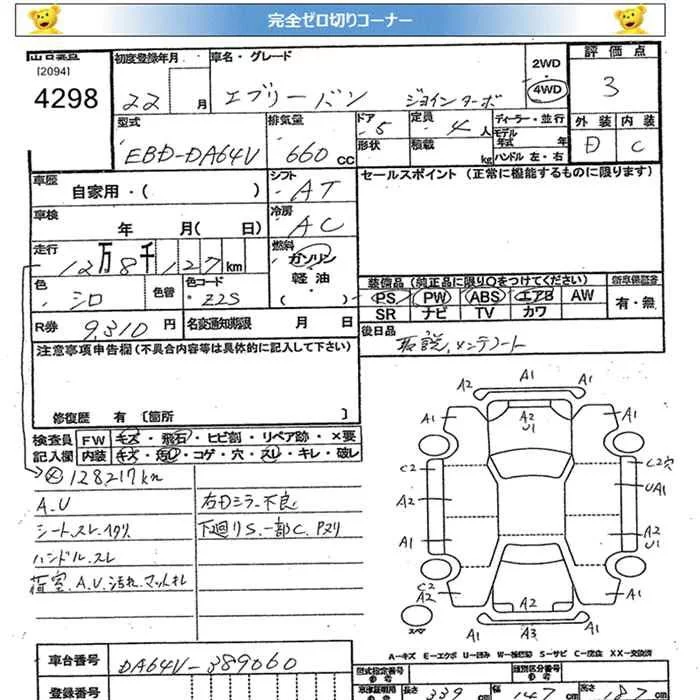 完全ゼロ切りコーナー
[2094]
4298
初度登録年月
22 月
車名・グレード
エブリーバン ジョインターボ
2WD
4WD
評価点
3
外装 内装
D C
型式
EBD-DA64V
排気量
660 cc
ドア
5
形状
定員
4 人
積載 kg
ディーラー・並行
モデル年式 年
ハンドル 左・右
車歴
自家用・( )
シフト
AT
車検
年 月( 日)
冷房
AC
走行
12万8千127km
燃料
ガソリン
軽油
( )
色
シロ
色替
色コード
Z2S
R券 9,310 円
名変通知期限 月 日
セールスポイント (正常に機能するものに限ります)
装備品 (純正品に限り○をつけてください)
PS PW ABS エアB AW
SR ナビ TV カワ
新車保証書
有・無
後日品
取説、メンテノート
注意事項申告欄 (不具合内容等は具体的に記入して下さい)
修復歴 有 〔箇所 〕
検査員記入欄
FW キズ・飛石・ヒビ割・リペア跡・×要
内装 キズ・汚レ・コゲ・穴・スレ・キレ・破レ
128217km
A.U
シート.スレ.ヘタリ
ハンドル.スレ
荷室.A.U.汚れ.マットキレ
右Dミラー不良
下廻りS.一部C.Pヌリ
A2 A1 A1
A1 A2 U1 A1
C2 C2穴
A2 UA1
A1 A2 U1
C2 A2 A2 A1
スペア A1 A3 A1
A-キズ E-エクボ U-凹み W-補修跡 S-サビ C-腐食 XX-交換済
車台番号
DA64V-389060
登録番号
型式指定番号
類別区分番号
長さ 339 cm 幅 147 cm 高さ 187 cm